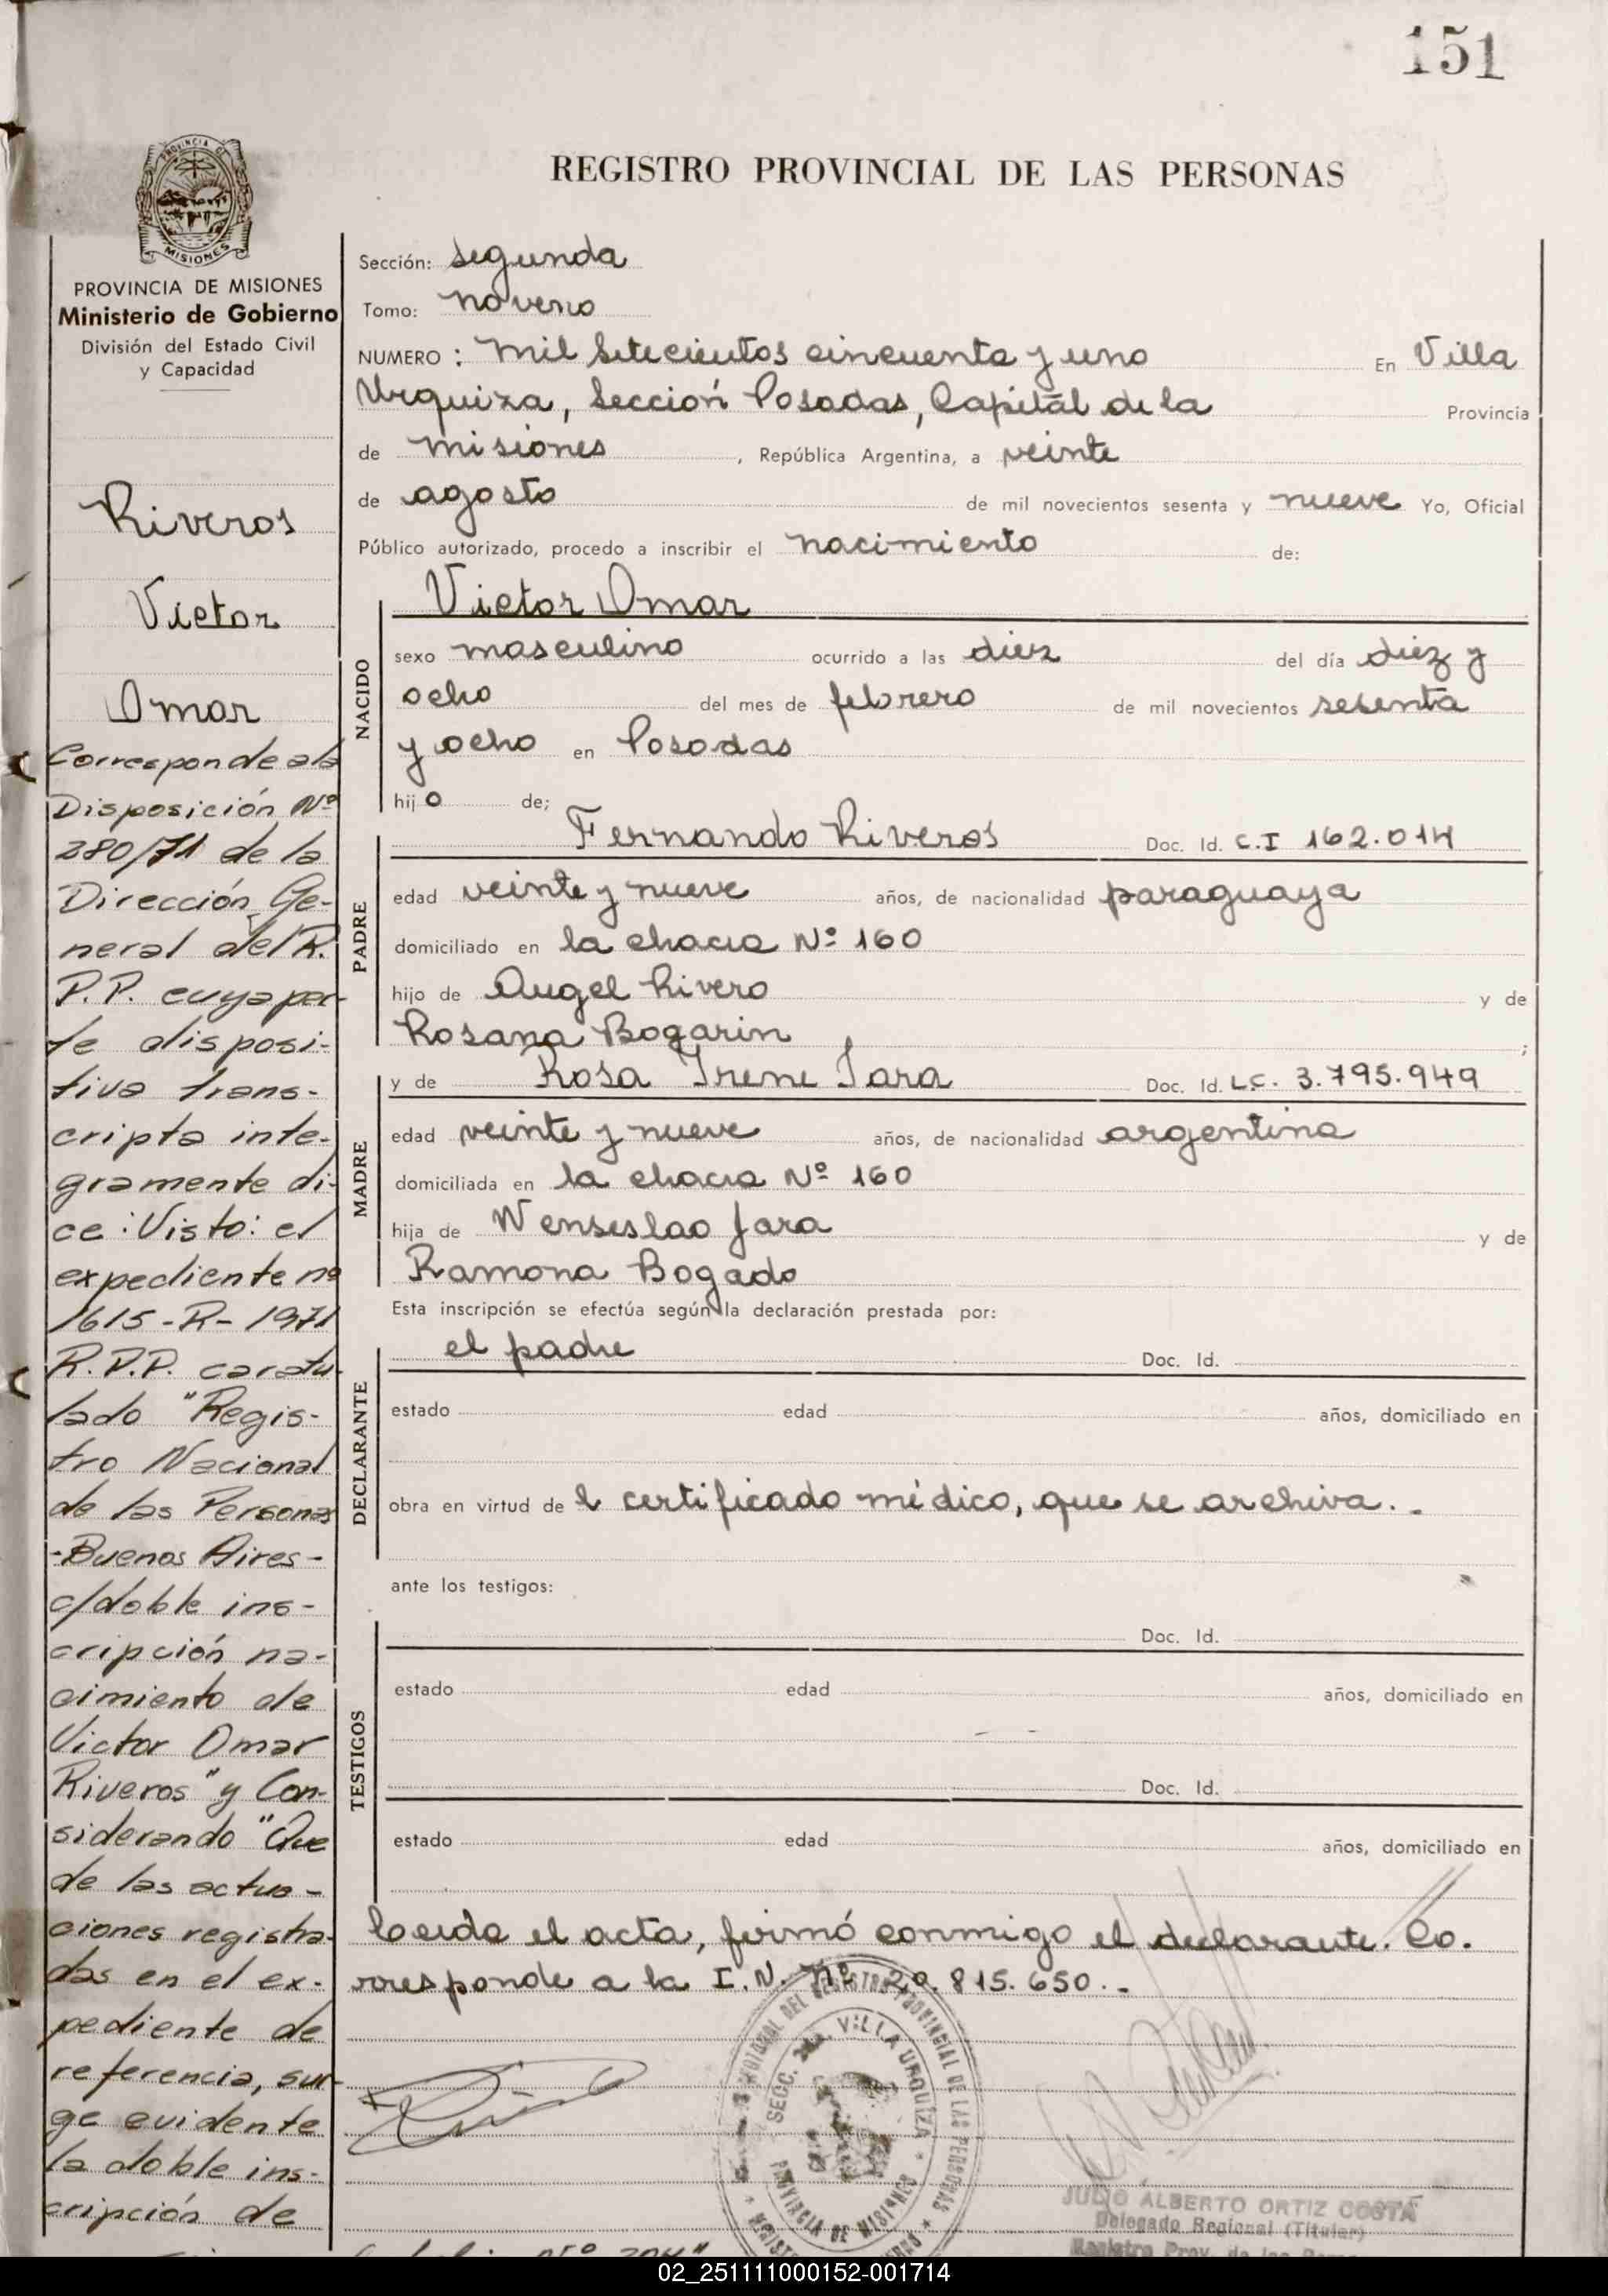 151
PROVINCIA DE
MISIONES
REGISTRO PROVINCIAL DE LAS PERSONAS
PROVINCIA DE MISIONES
Ministerio de Gobierno
División del Estado Civil
y Capacidad
Riveros
Victor
Omar
Corresponde a la
Disposición Nº
280/71 de la
Dirección Ge-
neral del R.
P.P. cuya par-
te disposi-
tiva trans-
cripta inte-
gramente di-
ce: Visto: el
expediente nº
1615-R-1971
R.P.P. caratu-
lado "Regis-
tro Nacional
de las Personas
-Buenos Aires-
c/doble ins-
cripción na-
cimiento de
Victor Omar
Riveros" y Con-
siderando "Que
de las actua-
ciones registra-
das en el ex-
pediente de
referencia, sur-
ge evidente
la doble ins-
cripción de
Sección: Segunda
Tomo: noveno
NUMERO: mil setecientos cincuenta y uno En Villa
Urquiza, Sección Posadas, Capital de la Provincia
de misiones, República Argentina, a veinte
de agosto de mil novecientos sesenta y nueve Yo, Oficial
Público autorizado, procedo a inscribir el nacimiento de:
NACIDO
Victor Omar
sexo masculino ocurrido a las diez del día diez y
ocho del mes de febrero de mil novecientos sesenta
y ocho en Posadas
hijo de;
PADRE
Fernando Riveros Doc. Id. C.I 162.014
edad veinte y nueve años, de nacionalidad paraguaya
domiciliado en la chacra Nº 160
hijo de Angel Rivero y de
Rosana Bogarin;
MADRE
y de Rosa Irene Jara Doc. Id. L.C. 3.795.949
edad veinte y nueve años, de nacionalidad argentina
domiciliada en la chacra Nº 160
hija de Wenseslao Jara y de
Ramona Bogado
Esta inscripción se efectúa según la declaración prestada por:
DECLARANTE
el padre Doc. Id.
estado edad años, domiciliado en
obra en virtud de l certificado médico, que se archiva..
ante los testigos:
TESTIGOS
Doc. Id.
estado edad años, domiciliado en
Doc. Id.
estado edad años, domiciliado en
Leida el acta, firmó conmigo el declarante. Co.
rresponde a la I.N. Nº 20.815.650.-
DEL REGISTRO PROVINCIAL DE LAS PERSONAS
SECC. 2da. VILLA URQUIZA
PROVINCIA DE MISIONES
JULIO ALBERTO ORTIZ COSTA
Delegado Regional (Titular)
Registro Prov. de las
02_251111000152-001714